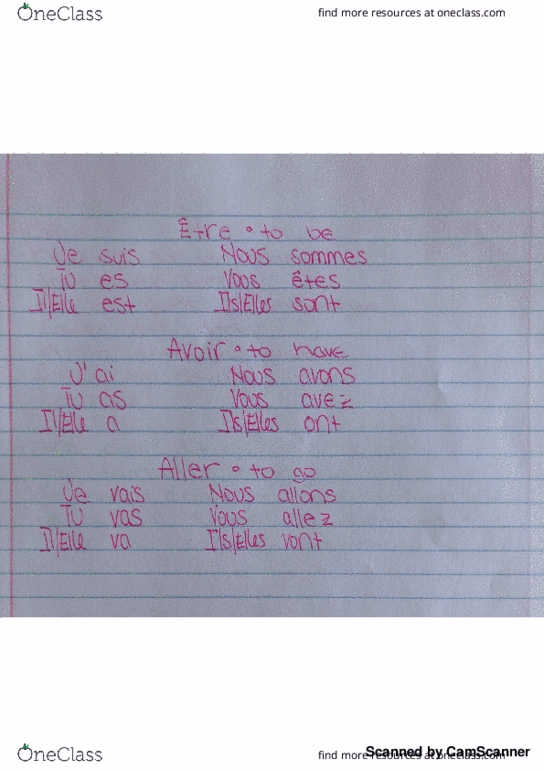 OneClass find more resources at oneclass.com
Être • to be
Je suis Nous sommes
Tu es Vous êtes
Il/Elle est Ils/Elles sont
Avoir • to have
J'ai Nous avons
Tu as Vous avez
Il/Elle a Ils/Elles ont
Aller • to go
Je vais Nous allons
Tu vas Vous allez
Il/Elle va Ils/Elles vont
OneClass find more resources at oneclass.com
Scanned by CamScanner